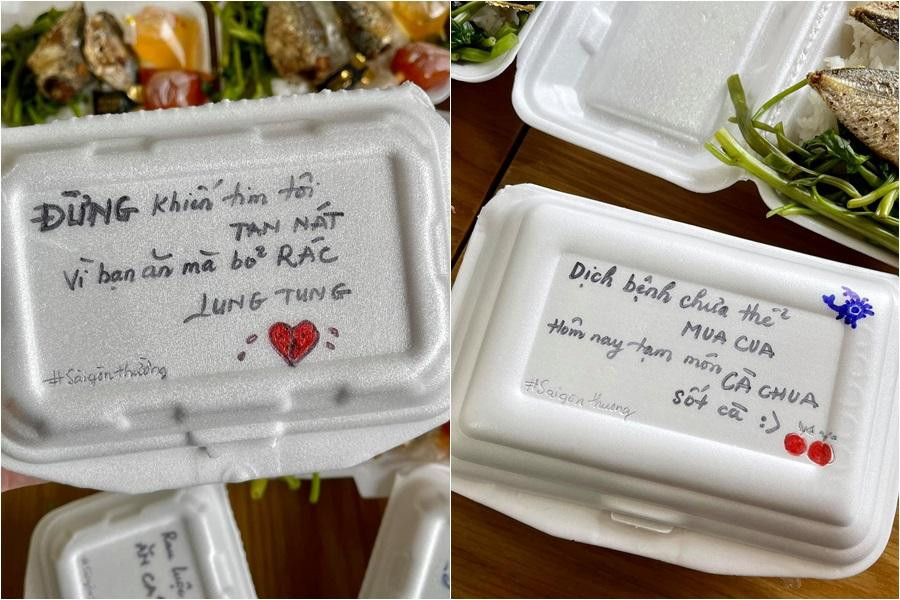 ĐỪNG khiến tim tôi
TAN NÁT
Vì bạn ăn mà bỏ RÁC
LUNG TUNG
#Sàigònthương
Rau luộc
ĂN CÁ
Dịch bệnh chưa thể
MUA CUA
Hôm nay tạm món
CÀ CHUA
sốt cà :)
#Sàigònthương